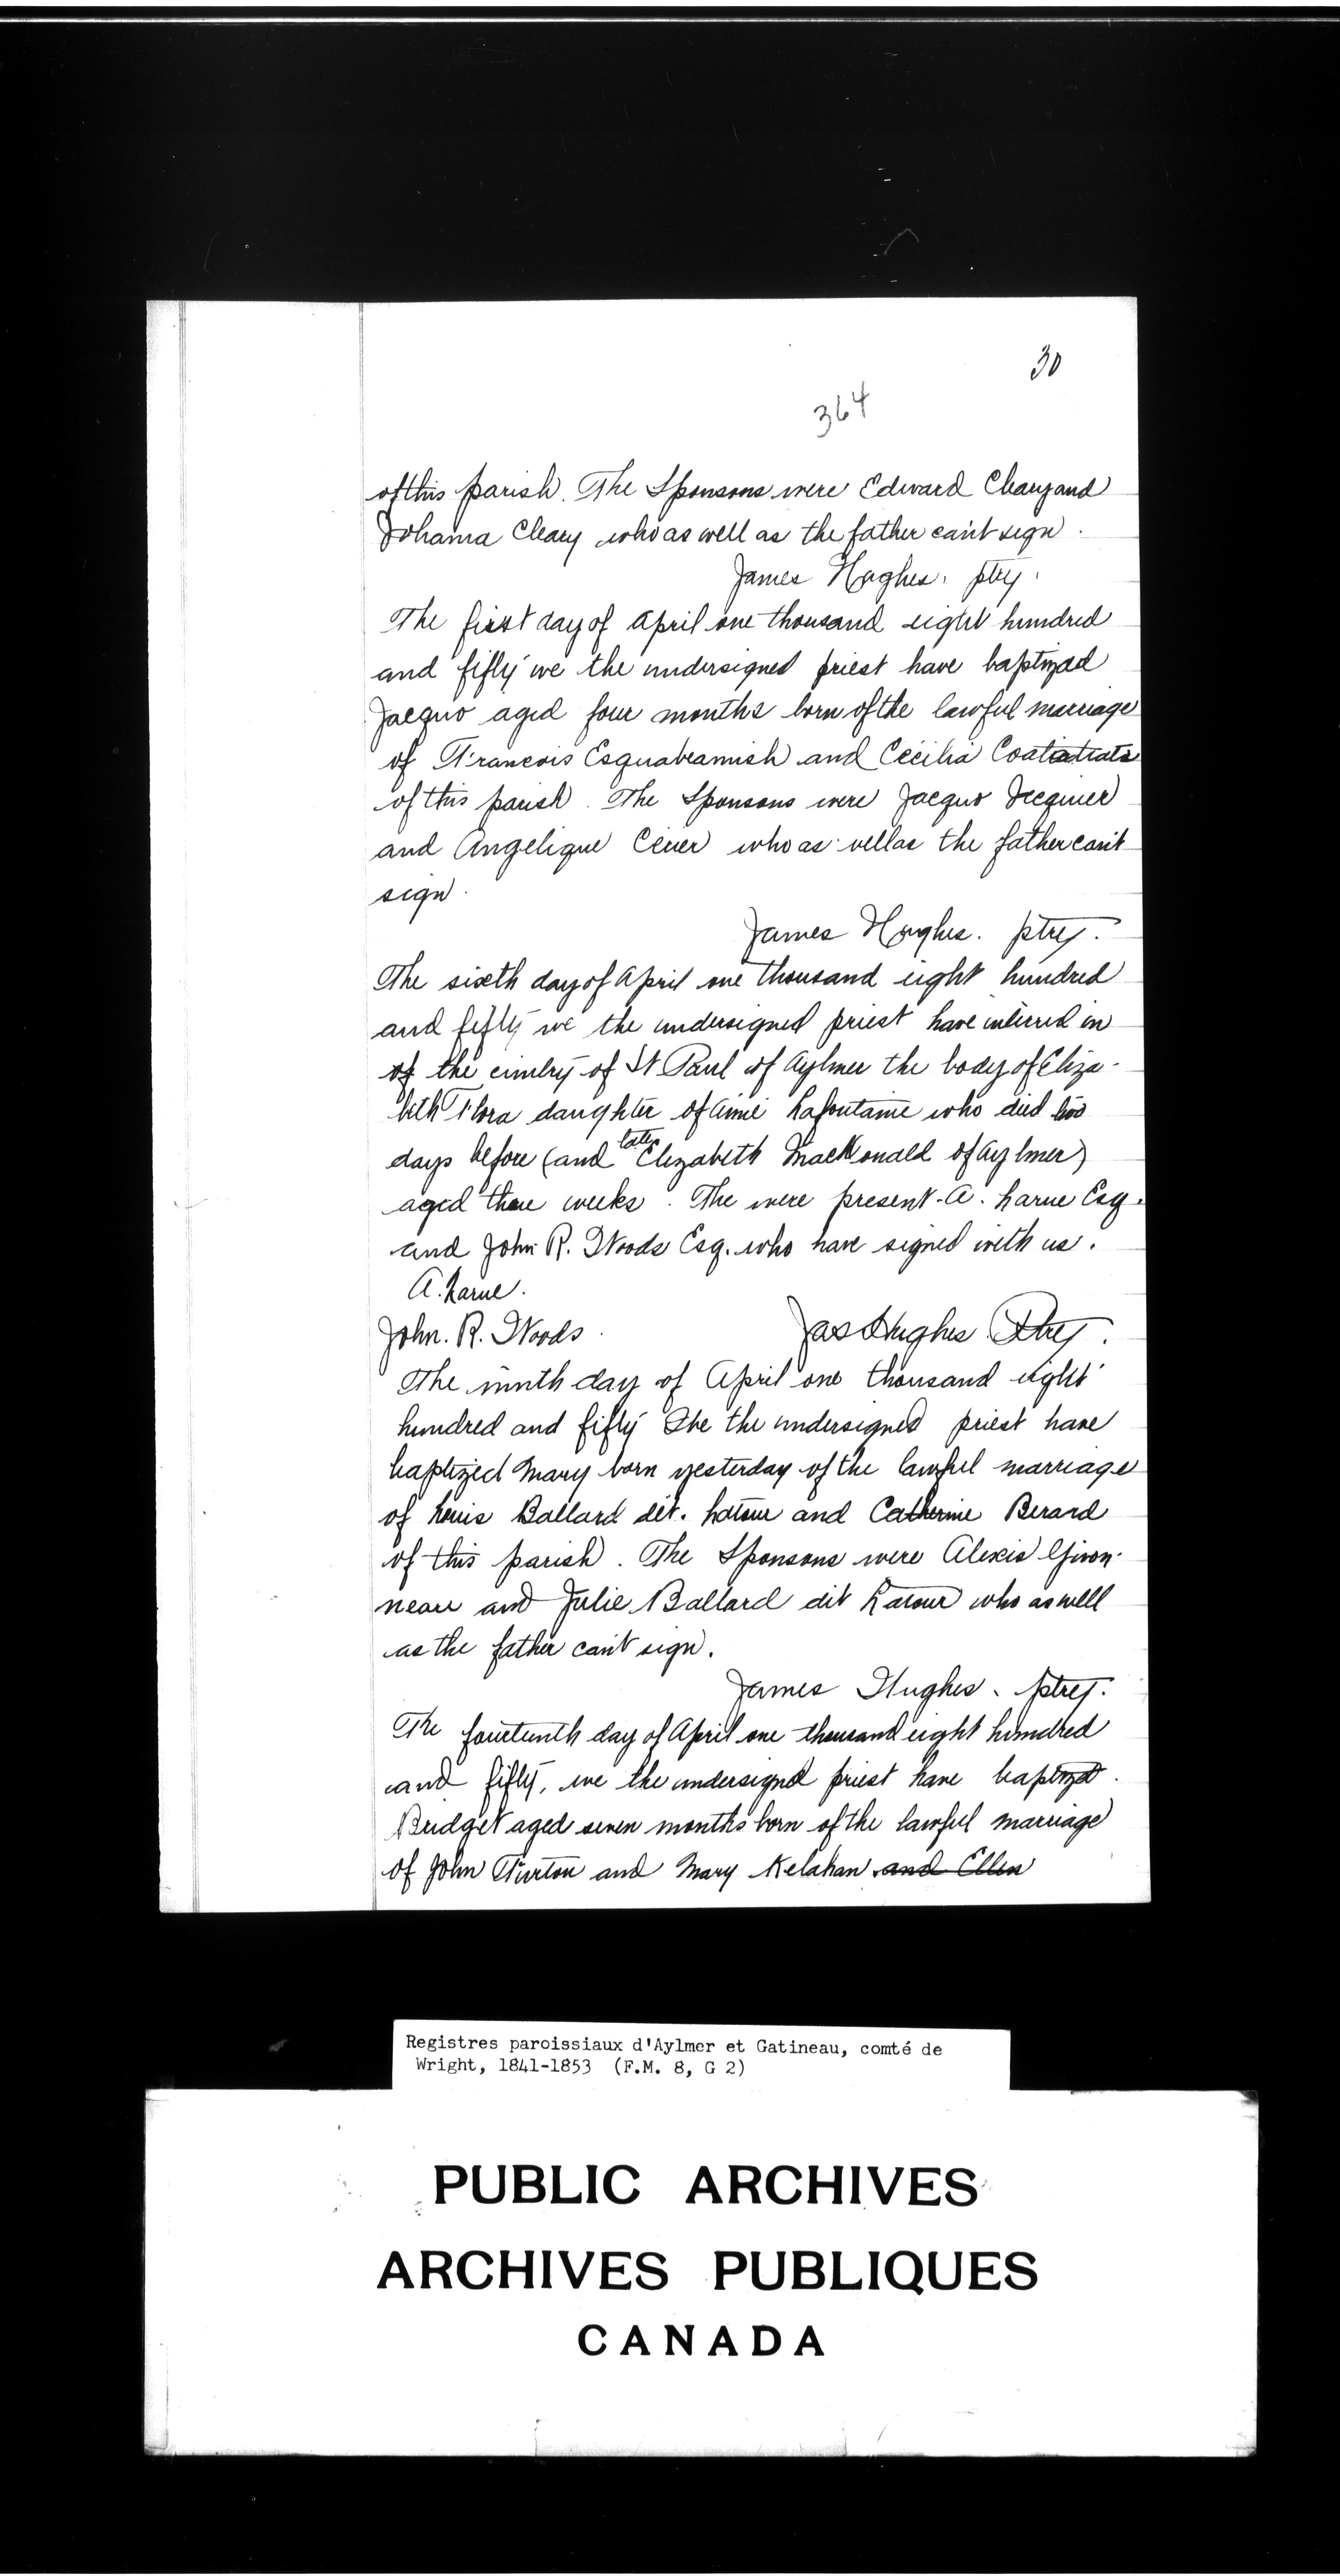 30
364
of this parish. The Sponsons were Edward Cleary and
Johanna Cleary who as well as the father can't sign.
James Hughes. ptry.
The first day of April one thousand eight hundred
and fifty we the undersigned priest have baptized
Jacquo aged four months born of the lawful marriage
of Francois Esquabeamish and Cecilia
of this parish. The Sponsons were Jacquo
and Angelique who as well as the father can't
sign.
James Hughes. ptrej.
The sixth day of April one thousand eight hundred
and fifty we the undersigned priest have interred in
of the cimtry of St Paul of Aylmer the body of Eliza-
beth Flora daughter of Aimé Lafontaine who died two
days before (and late Elizabeth MacDonald of Aylmer)
aged three weeks. The were present A. Larue Esq.
and John R. Woods Esq. who have signed with us.
A. Larue.
John. R. Woods. Jas Hughes. Ptrej.
The ninth day of April one thousand eight
hundred and fifty We the undersigned priest have
baptized Mary born yesterday of the lawful marriage
of Louis Ballard dit. Latour and Catherine Berard
of this parish. The Sponsons were Alexis
and Julie Ballard dit Latour who as well
as the father can't sign.
James Hughes. ptrej.
The fourteenth day of April one thousand eight hundred
and fifty, we the undersigned priest have baptized.
Bridget aged seven months born of the lawful marriage
of John and Mary Kelahan and Ellen
Registres paroissiaux d'Aylmer et Gatineau, comté de
Wright, 1841-1853 (F.M. 8, G 2)
PUBLIC ARCHIVES
ARCHIVES PUBLIQUES
CANADA